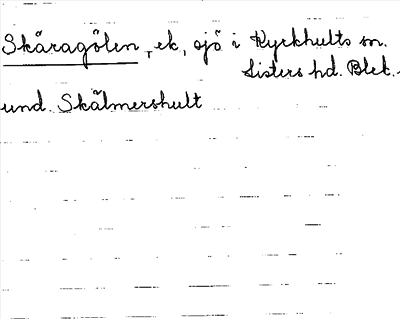 Skäragölen, ek, sjö i Kyrkhults sn.
Listers hd. Blek.
und. Skälmershult